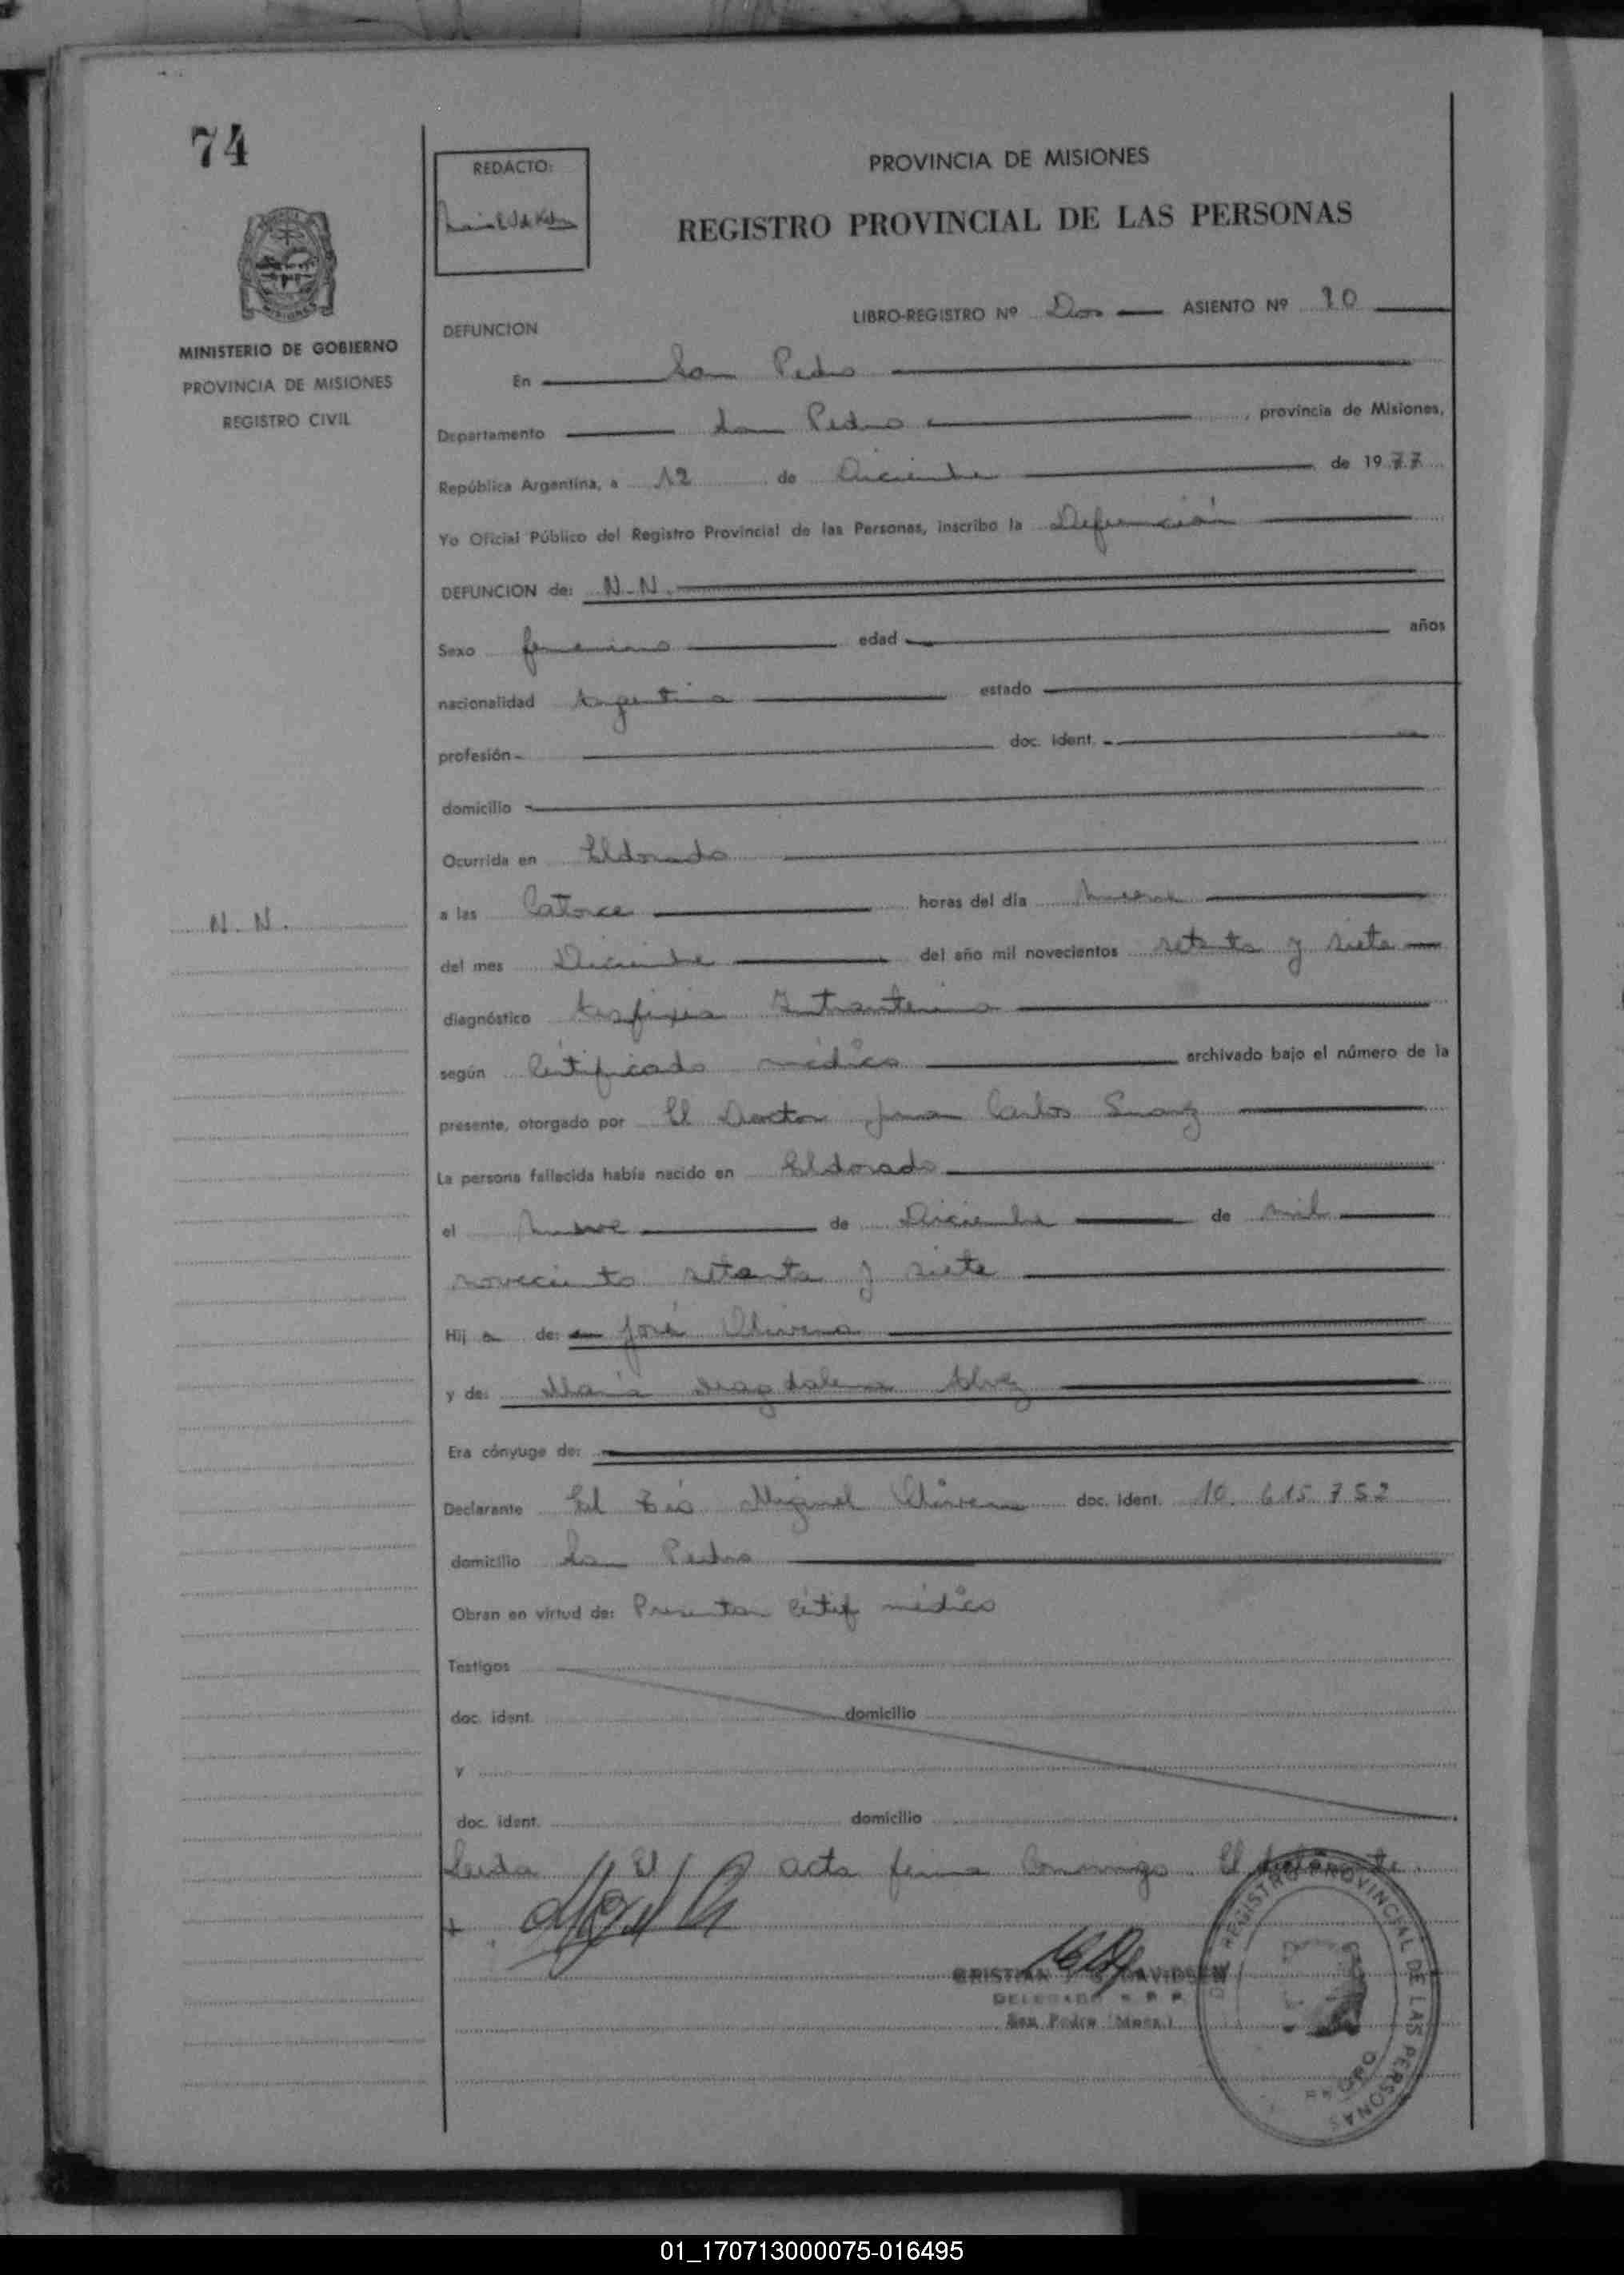 74
REDACTO:
PROVINCIA DE MISIONES
REGISTRO PROVINCIAL DE LAS PERSONAS
MINISTERIO DE GOBIERNO
PROVINCIA DE MISIONES
REGISTRO CIVIL
LIBRO-REGISTRO Nº Dos ASIENTO Nº
DEFUNCION
En San Pedro
Departamento San Pedro, provincia de Misiones,
República Argentina, a 12 de Diciembre de 1977
Yo Oficial Público del Registro Provincial de las Personas, inscribo la Defunción
DEFUNCION de: N.N.
Sexo femenino edad años
nacionalidad Argentina estado
profesión doc. ident.
domicilio
Ocurrida en Eldorado
N. N.
a las Catorce horas del día nueve
del mes Diciembre del año mil novecientos setenta y siete
diagnóstico Asfixia Intrauterina
según Certificado médico archivado bajo el número de la
presente, otorgado por El Doctor Juan Carlos Suarez
La persona fallecida había nacido en Eldorado
el nueve de Diciembre de mil
noveciento setenta y siete
Hija de: José Olivera
y de: Maria Magdalena Alvez
Era cónyuge de:
Declarante El Tio Miguel Olivera doc. ident. 10.615.752
domicilio San Pedro
Obran en virtud de: Presentar Certif médico
Testigos
doc. ident. domicilio
y
doc. ident. domicilio
Leida El acta firma Conmigo. El declarante.
CRISTIAN DAVIDSEN
DELEGADO R. P. P.
San Pedro (Mnes.)
REGISTRO PROVINCIAL DE LAS PERSONAS
01_170713000075-016495